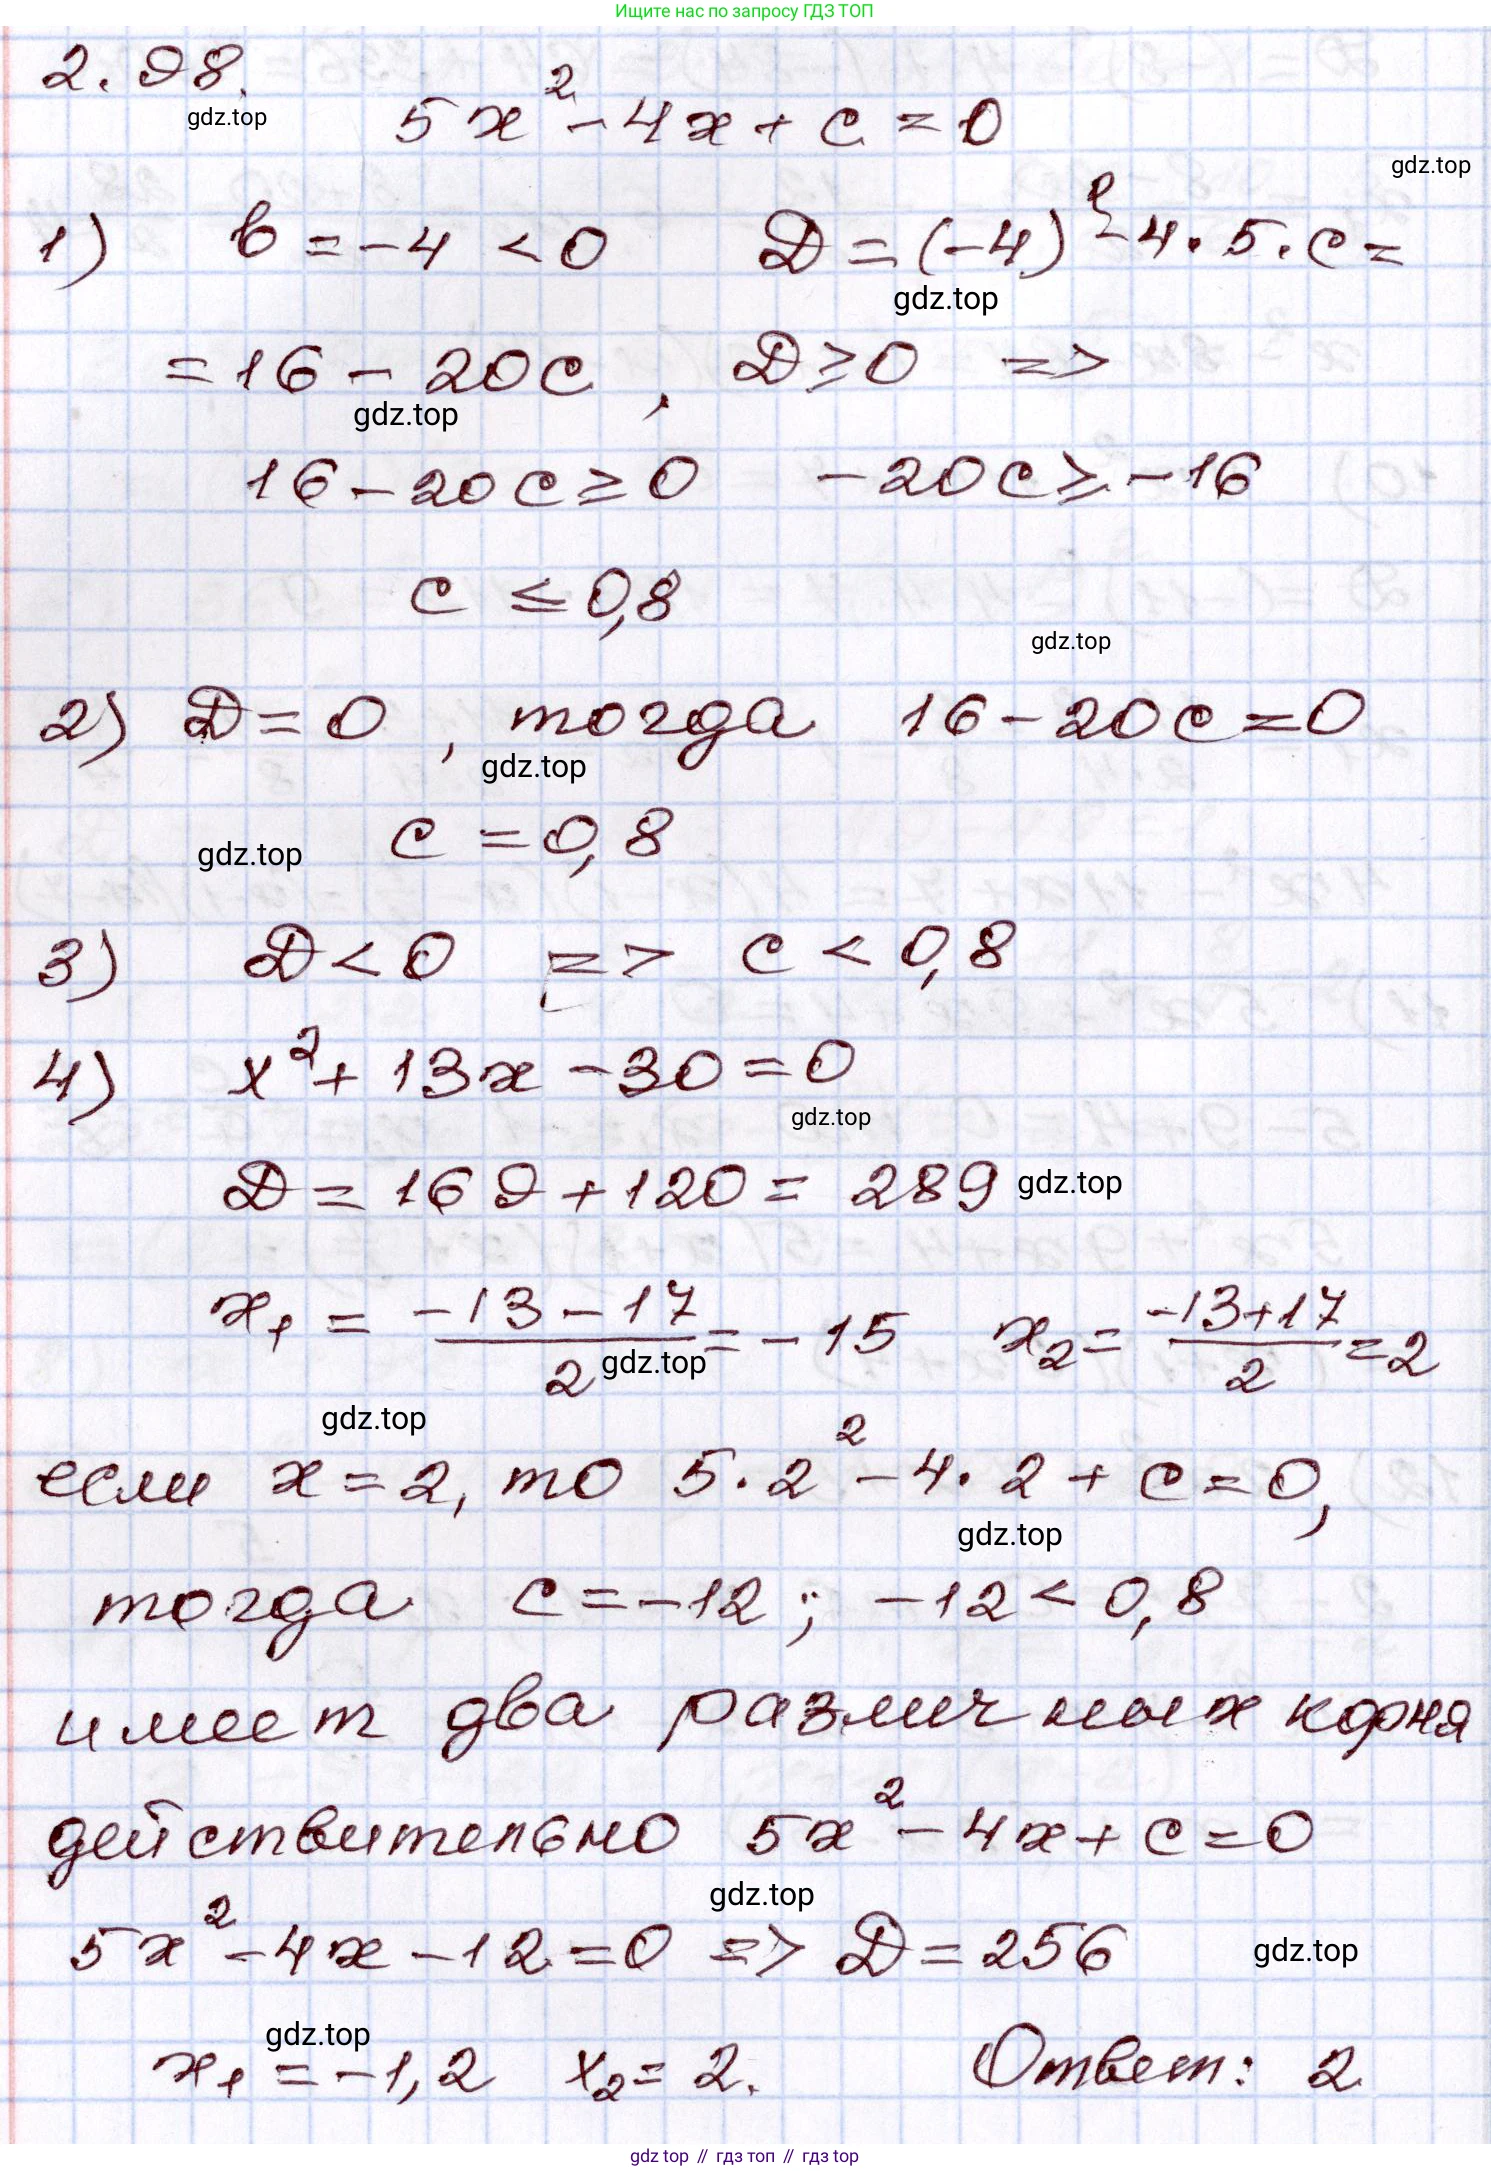 Ищите нас по запросу ГДЗ ТОП
2.98.
gdz.top
5x² - 4x + c = 0
gdz.top
1) b = -4 < 0 D = (-4)² - 4·5·c =
gdz.top
= 16 - 20c, D ≥ 0 =>
gdz.top
16 - 20c ≥ 0 -20c ≥ -16
c ≤ 0,8
gdz.top
2) D = 0, тогда 16 - 20c = 0
gdz.top
c = 0,8
gdz.top
3) D < 0 => c < 0,8
4) x² + 13x - 30 = 0
gdz.top
D = 169 + 120 = 289 gdz.top
x₁ = (-13 - 17)/2 = -15 x₂ = (-13 + 17)/2 = 2
gdz.top
gdz.top
если x = 2, то 5·2² - 4·2 + c = 0,
gdz.top
тогда c = -12; -12 < 0,8
имеет два различных корня
действительно 5x² - 4x + c = 0
gdz.top
5x² - 4x - 12 = 0 => D = 256
gdz.top
gdz.top
x₁ = -1,2 x₂ = 2. Ответ: 2
gdz top // гдз топ // gdz top